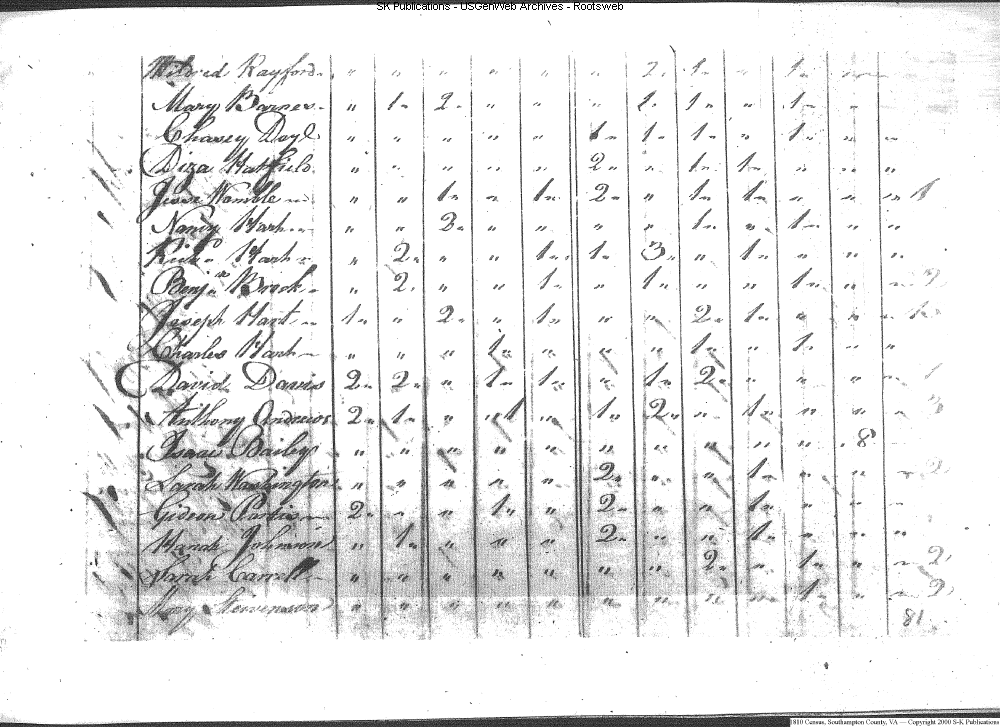 SK Publications - USGenWeb Archives - Rootsweb
Mildred Rayford " " " " " " 2 1 " 1 " "
Mary Barnes " 1 2 " " " 1 1 " 1 " "
Chasey Doyl " " " " " 1 1 1 " 1 " "
Diza Hatfield " " " " " 2 " 1 1 " " "
Jesse Womble " " 1 " 1 2 " 1 1 " " "
Nancy Harh " " 2 " " " " 1 " 1 " "
Harh " 2 " " 1 1 3 " 1 " " "
Benjn Brock " 2 " " 1 " 1 " " 1 " "
Joseph Hart 1 " 2 " 1 " " 2 1 " " "
Charles Harh " " " 1 " " " 1 " 1 " "
David Davis 2 2 " 1 1 " 1 2 " " " "
Anthony Andrews 2 1 " 1 " 1 2 " 1 " " "
Isaac Bailey " " " " " " " " " " 8
Sarah Washington " " " " " 2 " " 1 " " 2
Gideon 2 " " 1 " 2 " " 1 " " "
Johnson " 1 " " " 2 " " 1 " " "
Sarah Carrell " " " " " " " 2 " 1 " 2
Stevenson " " " " " " " " " 1 " 2
81
1810 Census, Southampton County, VA — Copyright 2000 S-K Publications